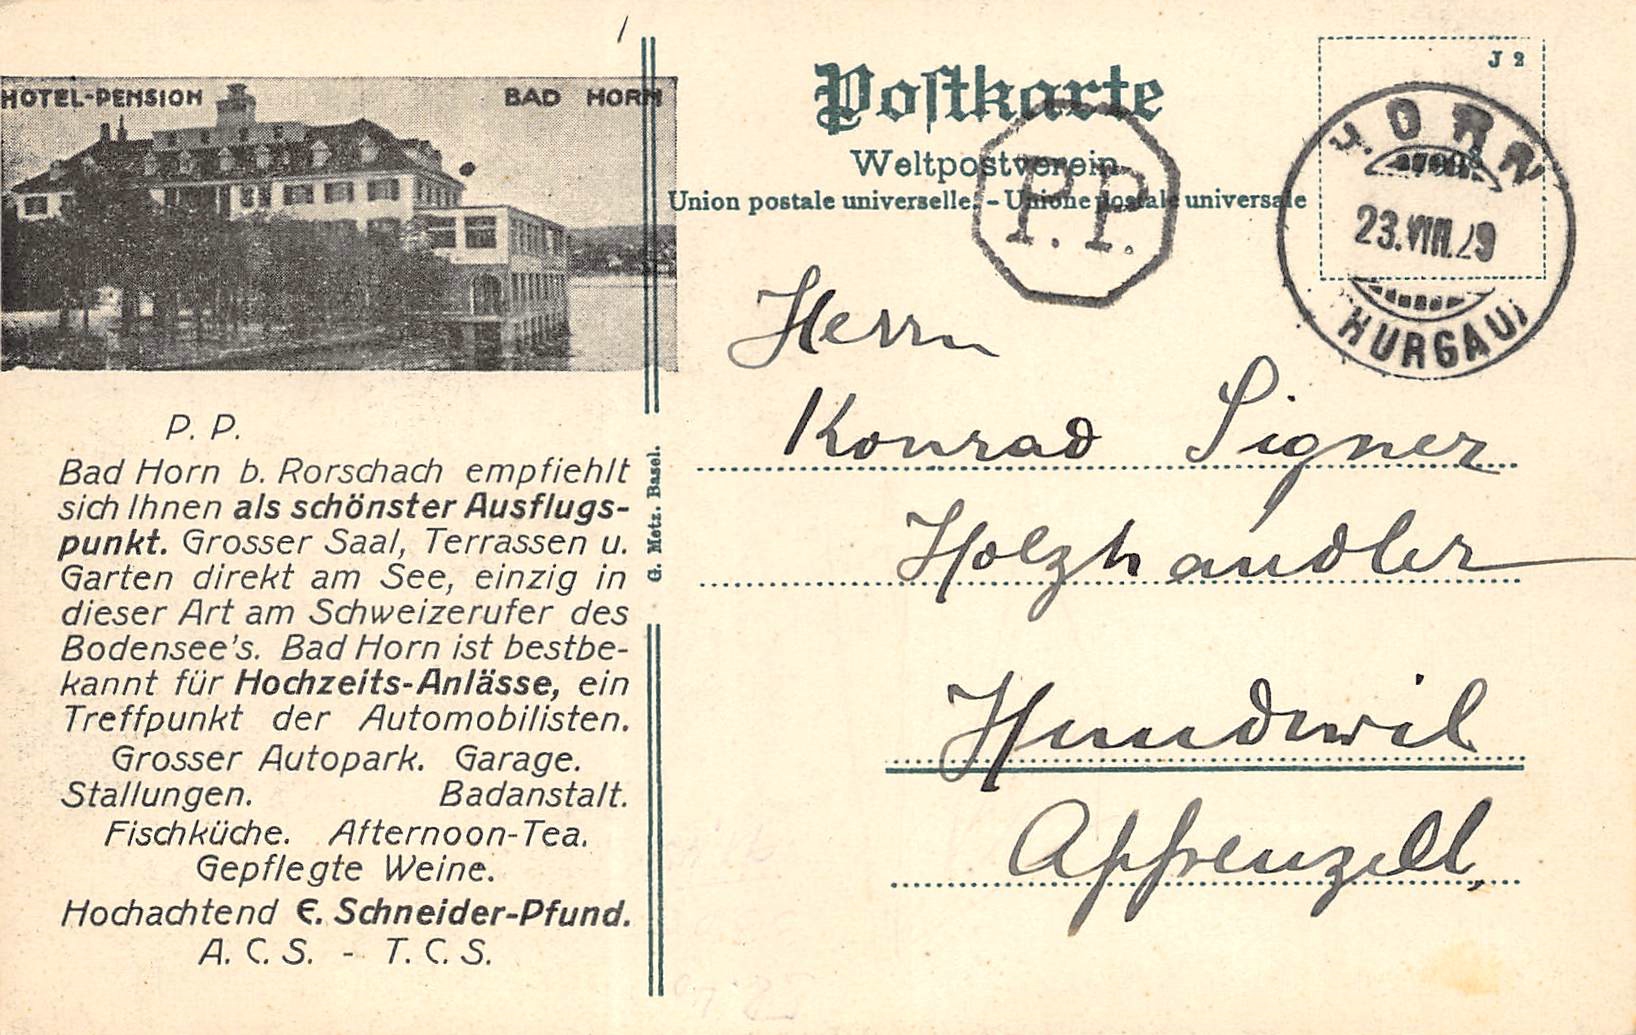 HOTEL-PENSION BAD HORN
P. P.
Bad Horn b. Rorschach empfiehlt
sich Ihnen als schönster Ausflugs-
punkt. Grosser Saal, Terrassen u.
Garten direkt am See, einzig in
dieser Art am Schweizerufer des
Bodensee's. Bad Horn ist bestbe-
kannt für Hochzeits-Anlässe, ein
Treffpunkt der Automobilisten.
Grosser Autopark. Garage.
Stallungen. Badanstalt.
Fischküche. Afternoon-Tea.
Gepflegte Weine.
Hochachtend E. Schneider-Pfund.
A. C. S. - T. C. S.
G. Metz. Basel.
Postkarte
Weltpostverein
Union postale universelle. - Unione postale universale
P. P.
J 2
HORN
23.VIII.29
THURGAU
Herrn
Konrad Signer
Holzhandler
Hundwil
Appenzell,